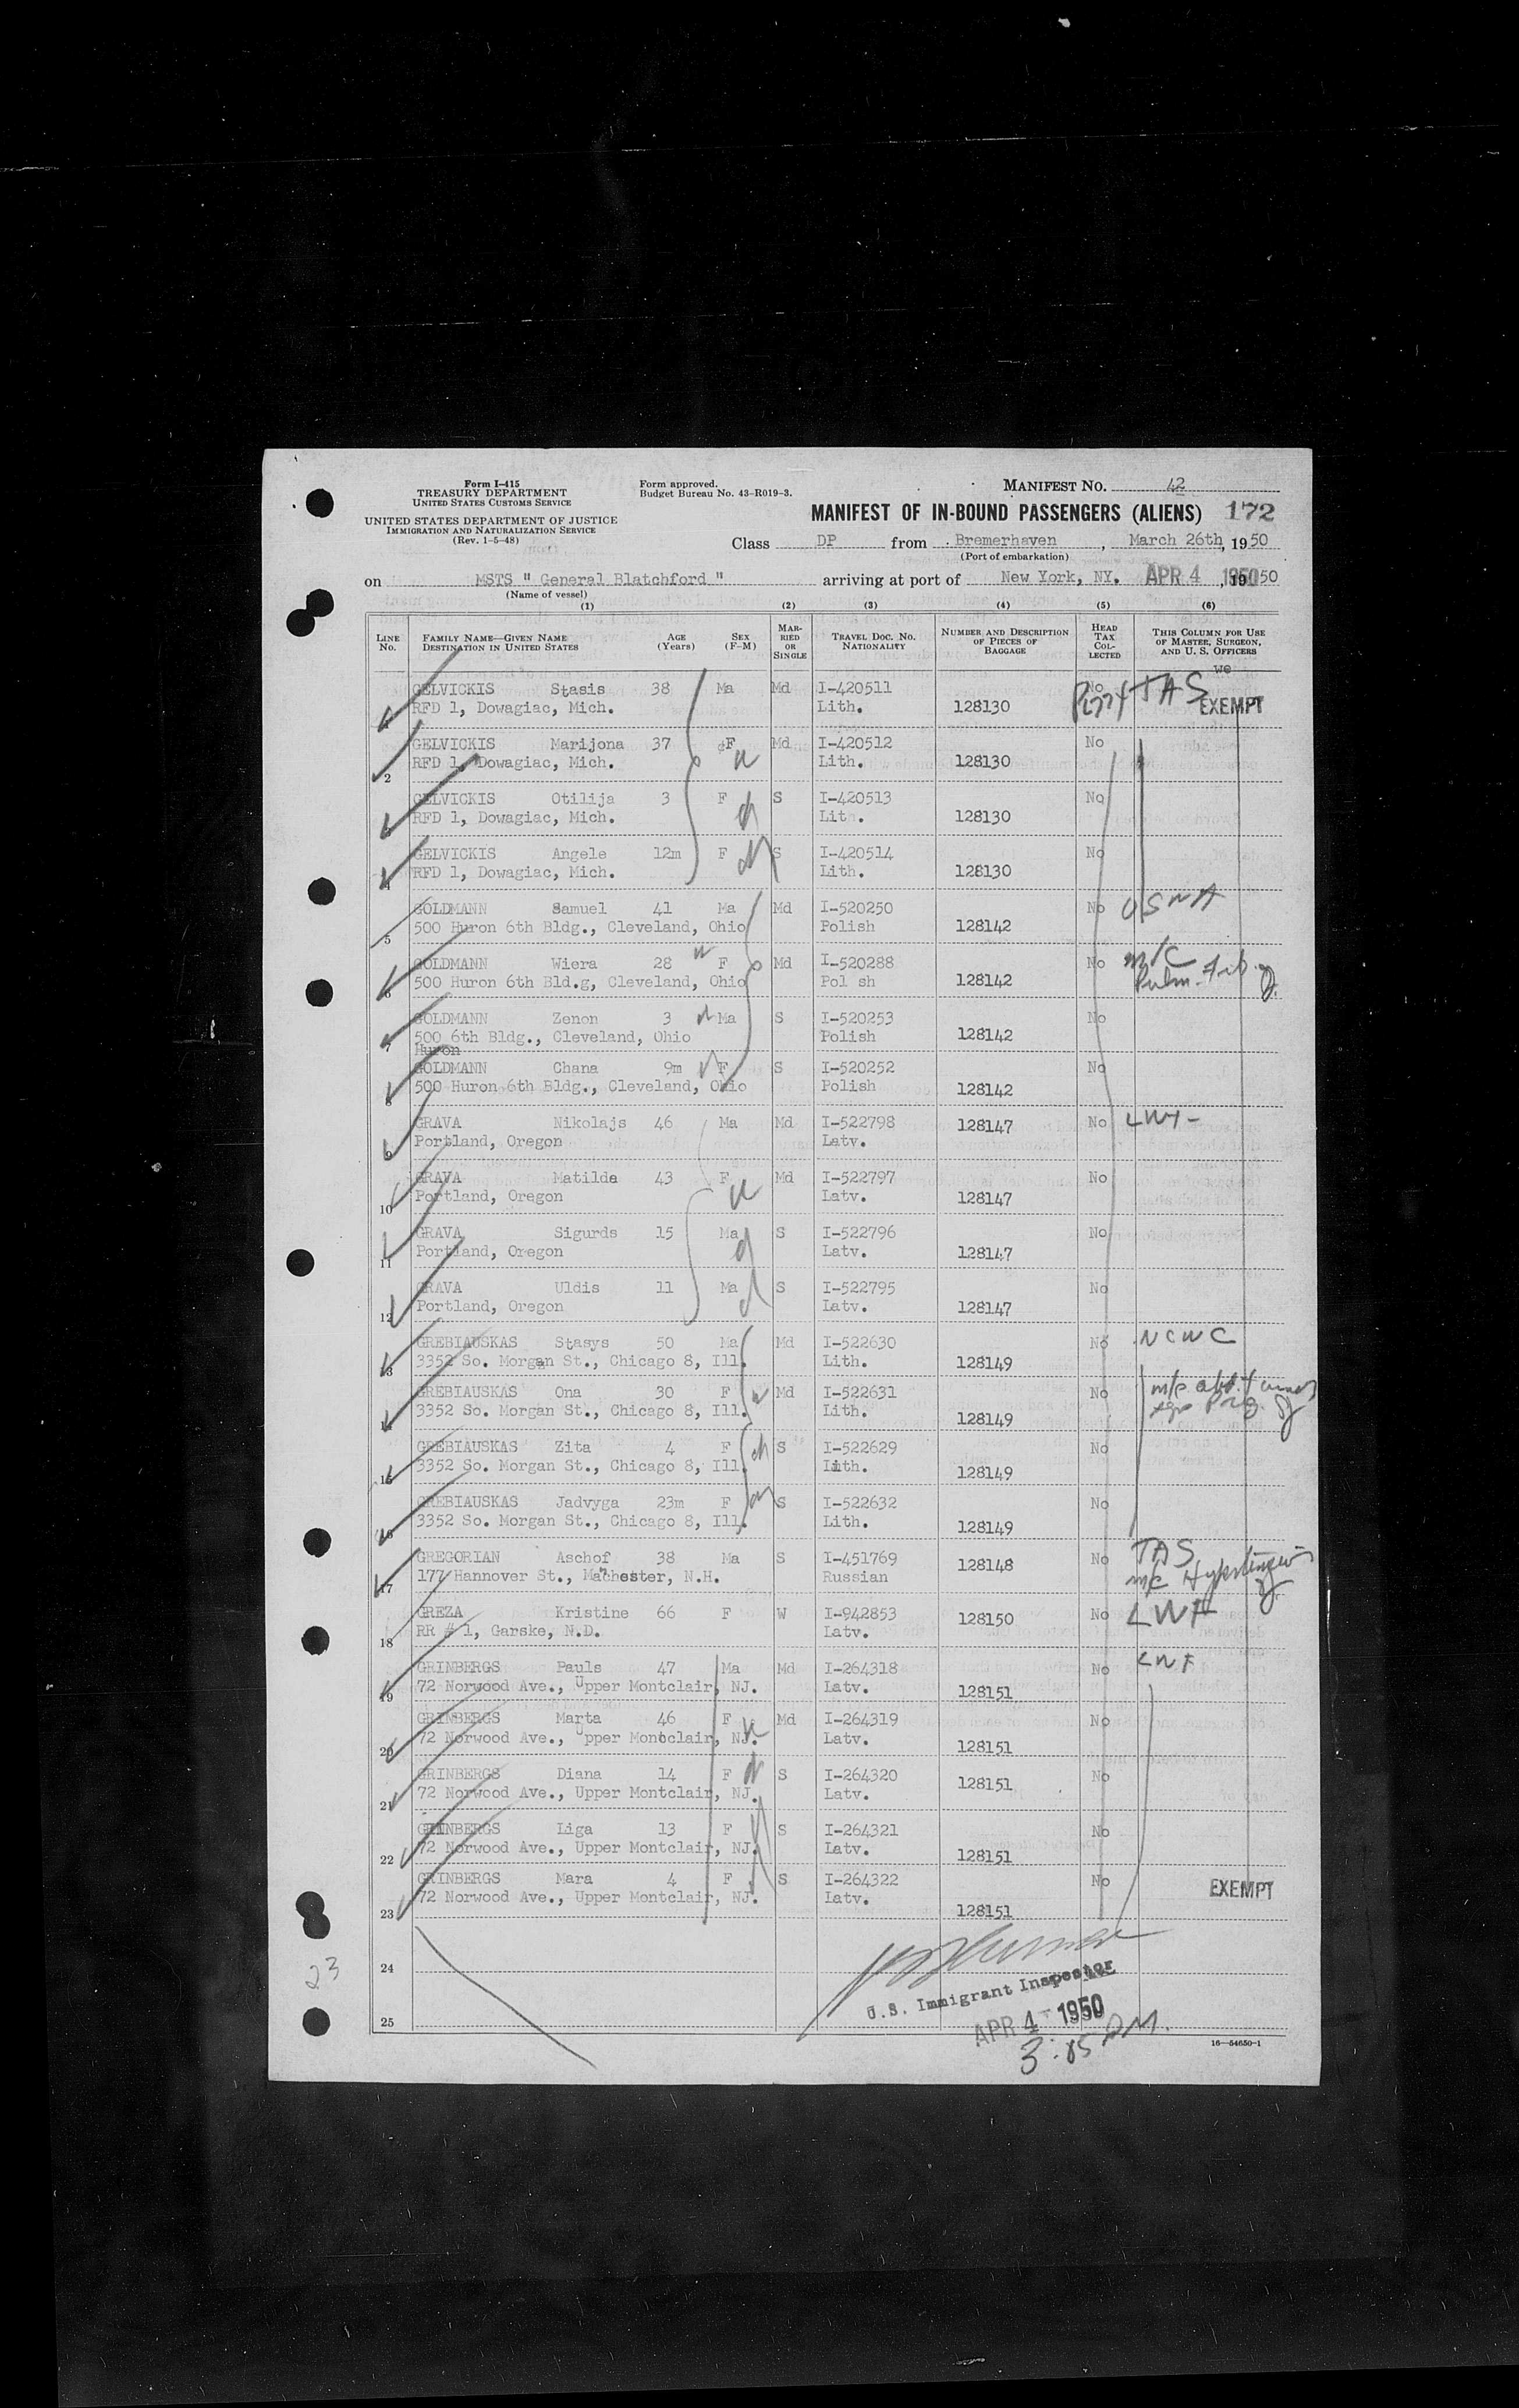 Form I-415
TREASURY DEPARTMENT
UNITED STATES CUSTOMS SERVICE
UNITED STATES DEPARTMENT OF JUSTICE
IMMIGRATION AND NATURALIZATION SERVICE
(Rev. 1-5-48)
Form approved.
Budget Bureau No. 43-R019-3.
MANIFEST NO. 42
MANIFEST OF IN-BOUND PASSENGERS (ALIENS) 172
Class DP from Bremerhaven, March 26th, 1950
(Port of embarkation)
on MSTS " General Blatchford " arriving at port of New York, NY. APR 4 1950, 1950
(Name of vessel)
(1) (2) (3) (4) (5) (6)
LINE NO. FAMILY NAME—GIVEN NAME DESTINATION IN UNITED STATES AGE (Years) SEX (F-M) MARRIED OR SINGLE TRAVEL DOC. NO. NATIONALITY NUMBER AND DESCRIPTION OF PIECES OF BAGGAGE HEAD TAX COLLECTED THIS COLUMN FOR USE OF MASTER, SURGEON, AND U. S. OFFICERS
we
GELVICKIS Stasis 38 Ma Md I-420511 No TAS
RFD 1, Dowagiac, Mich. Lith. 128130 EXEMPT
GELVICKIS Marijona 37 F Md I-420512 No
2 RFD 1, Dowagiac, Mich. Lith. 128130
GELVICKIS Otilija 3 F S I-420513 No
RFD 1, Dowagiac, Mich. Lit. 128130
GELVICKIS Angele 12m F S I-420514 No
4 RFD 1, Dowagiac, Mich. Lith. 128130
GOLDMANN Samuel 41 Ma Md I-520250 No USNA
5 500 Huron 6th Bldg., Cleveland, Ohio Polish 128142
GOLDMANN Wiera 28 F Md I-520288 No m/c
6 500 Huron 6th Bld.g, Cleveland, Ohio Pol sh 128142 Pulm. Fib.
GOLDMANN Zenon 3 Ma S I-520253 No
7 500 6th Bldg., Cleveland, Ohio Polish 128142
Huron
GOLDMANN Chana 9m F S I-520252 No
8 500 Huron 6th Bldg., Cleveland, Ohio Polish 128142
GRAVA Nikolajs 46 Ma Md I-522798 128147 No
9 Portland, Oregon Latv.
GRAVA Matilda 43 F Md I-522797 No
10 Portland, Oregon Latv. 128147
GRAVA Sigurds 15 Ma S I-522796 No
11 Portland, Oregon Latv. 128147
GRAVA Uldis 11 Ma S I-522795 No
12 Portland, Oregon Latv. 128147
GREBIAUSKAS Stasys 50 Ma Md I-522630 No NCWC
13 3352 So. Morgan St., Chicago 8, Ill. Lith. 128149
GREBIAUSKAS Ona 30 F Md I-522631 No m/c
14 3352 So. Morgan St., Chicago 8, Ill. Lith. 128149
GREBIAUSKAS Zita 4 F S I-522629 No
15 3352 So. Morgan St., Chicago 8, Ill. Lith. 128149
GREBIAUSKAS Jadvyga 23m F S I-522632 No
16 3352 So. Morgan St., Chicago 8, Ill. Lith. 128149
GREGORIAN Aschof 38 Ma S I-451769 128148 No TAS
17 177 Hannover St., Manchester, N.H. Russian m/c Hypertension
GREZA Kristine 66 F W I-942853 128150 No LWF
18 RR # 1, Garske, N.D. Latv.
GRINBERGS Pauls 47 Ma Md I-264318 No LWF
19 72 Norwood Ave., Upper Montclair, NJ. Latv. 128151
GRINBERGS Marta 46 F Md I-264319 No
20 72 Norwood Ave., Upper Montclair, NJ. Latv. 128151
GRINBERGS Diana 14 F S I-264320 128151 No
21 72 Norwood Ave., Upper Montclair, NJ. Latv.
GRINBERGS Liga 13 F S I-264321 No
22 72 Norwood Ave., Upper Montclair, NJ. Latv. 128151
GRINBERGS Mara 4 F S I-264322 No EXEMPT
23 72 Norwood Ave., Upper Montclair, NJ. Latv. 128151
23
24
U.S. Immigrant Inspector
25
APR 4 1950
3:05 PM.
16—54650-1